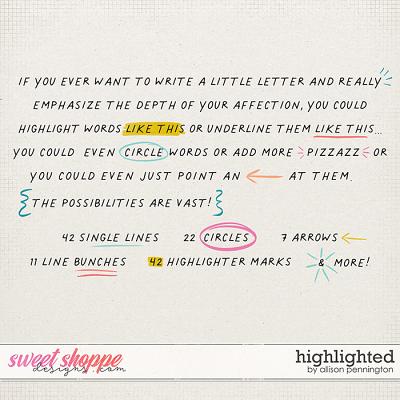 IF YOU EVER WANT TO WRITE A LITTLE LETTER AND REALLY
EMPHASIZE THE DEPTH OF YOUR AFFECTION, YOU COULD
HIGHLIGHT WORDS LIKE THIS OR UNDERLINE THEM LIKE THIS...
YOU COULD EVEN CIRCLE WORDS OR ADD MORE PIZZAZZ OR
YOU COULD EVEN JUST POINT AN AT THEM.
{THE POSSIBILITIES ARE VAST!}
42 SINGLE LINES 22 CIRCLES 7 ARROWS
11 LINE BUNCHES 42 HIGHLIGHTER MARKS & MORE!
sweet shoppe
designs.com
highlighted
by allison pennington